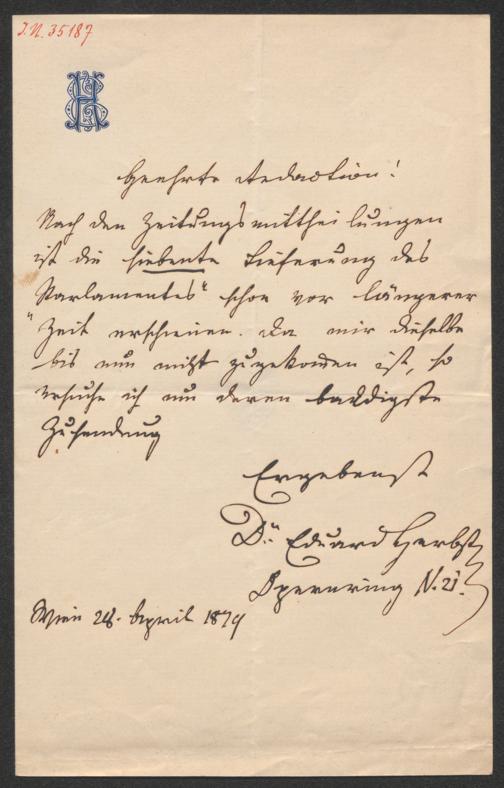 I.N. 35187
EH
Geehrte Redaction!
Nach den Zeitungsmittheilungen
ist die siebente Lieferung des
„Parlamentes“ schon vor längerer
Zeit erschienen. Da mir dieselbe
bis nun nicht zugekommen ist, so
ersuche ich um deren baldigste
Zusendung
Ergebenst
Dr. Eduard Herbst
Opernring N. 21.
Wien 28. April 1879